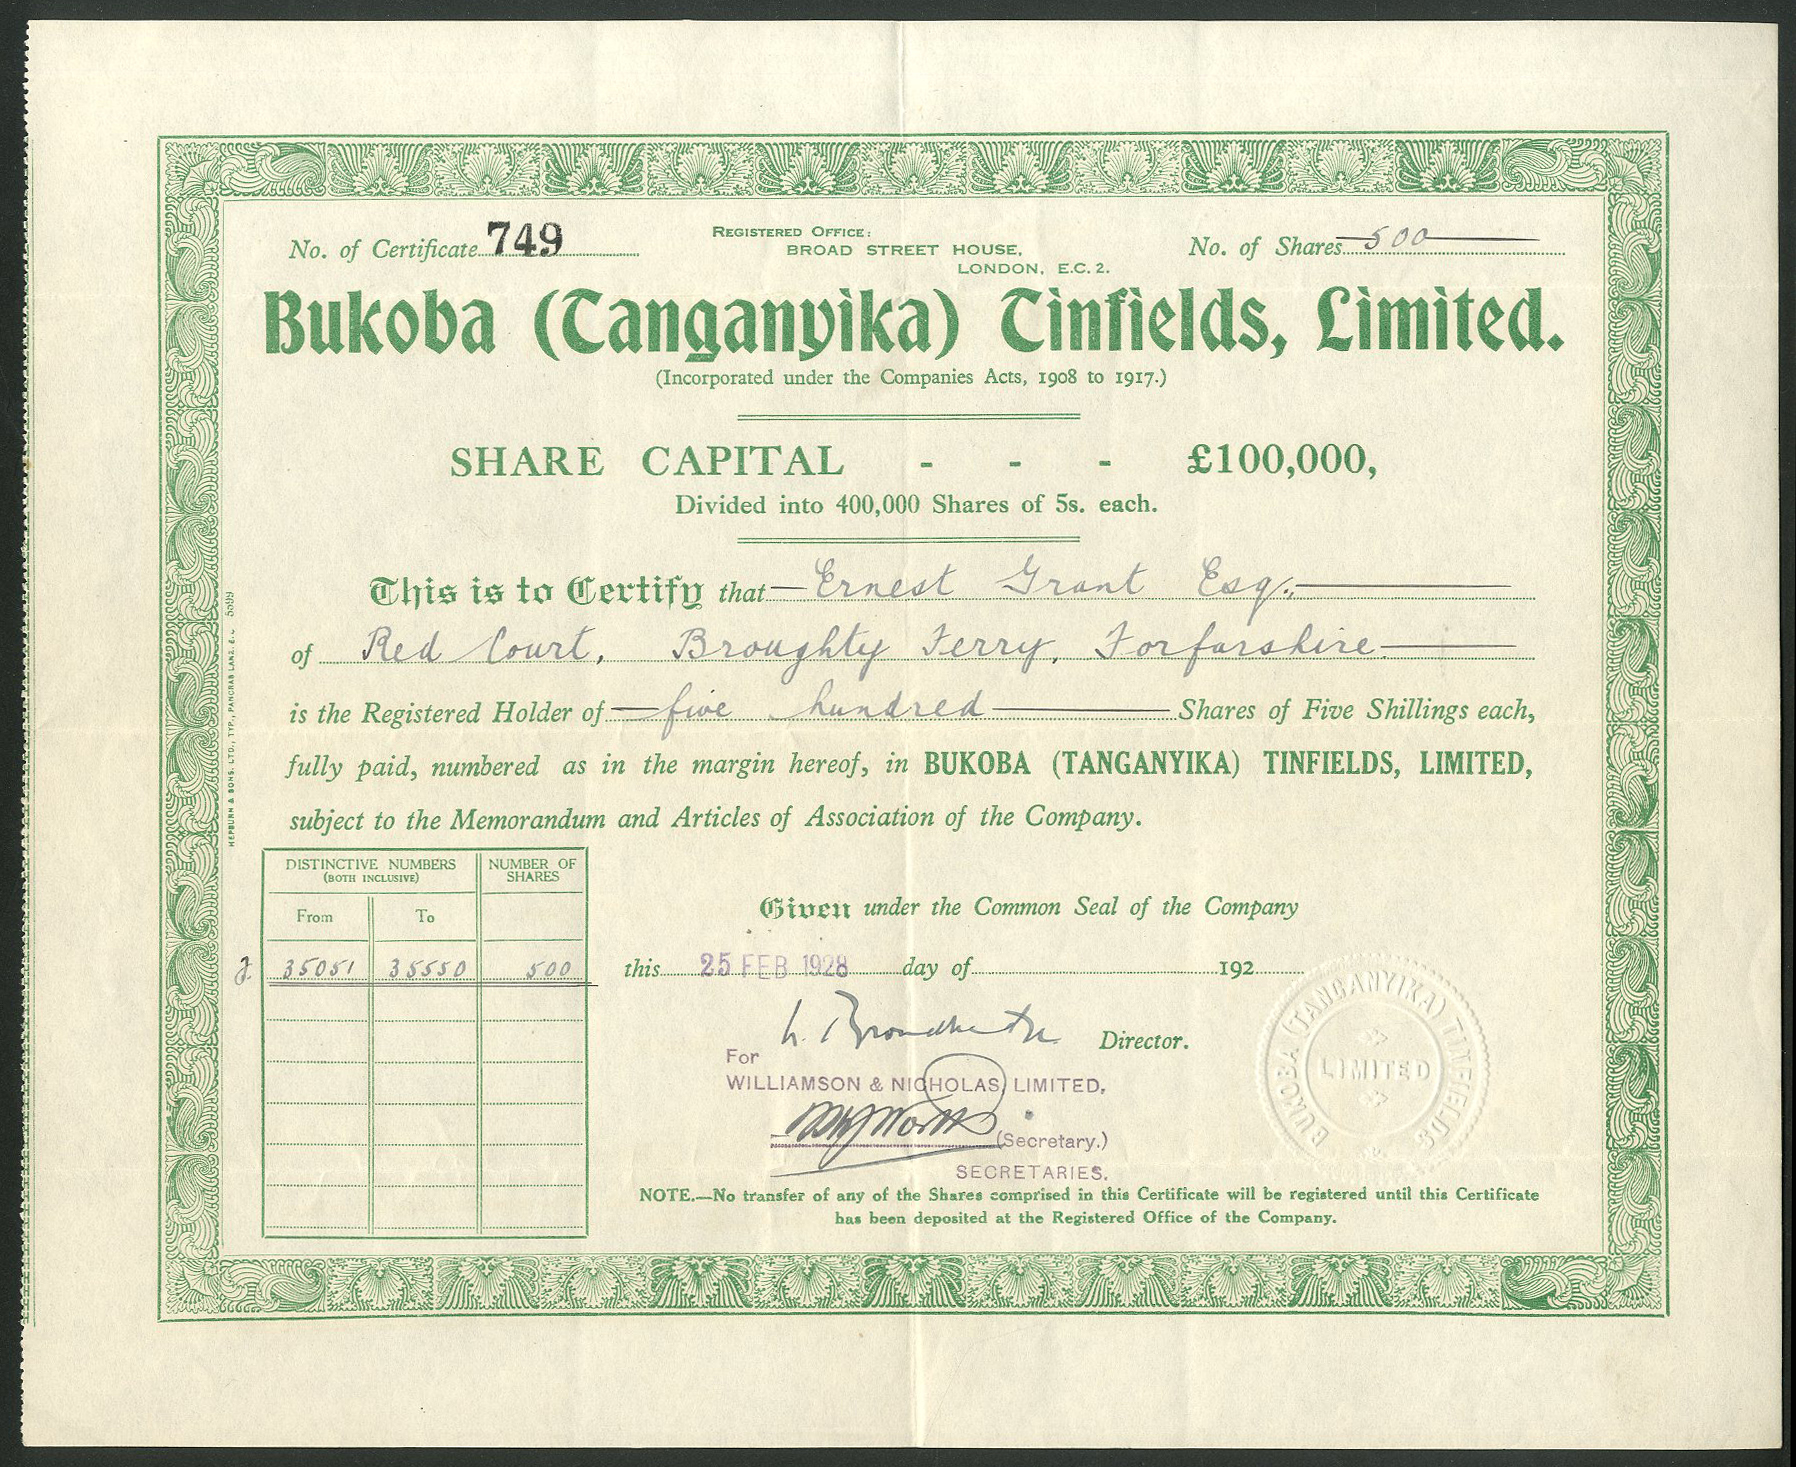 No. of Certificate 749
REGISTERED OFFICE:
BROAD STREET HOUSE,
LONDON, E.C. 2.
No. of Shares 500
Bukoba (Tanganyika) Tinfields, Limited.
(Incorporated under the Companies Acts, 1908 to 1917.)
SHARE CAPITAL - - - £100,000,
Divided into 400,000 Shares of 5s. each.
This is to Certify that Ernest Grant Esq.,
of Red Court, Broughty Ferry, Forfarshire
is the Registered Holder of five hundred Shares of Five Shillings each,
fully paid, numbered as in the margin hereof, in BUKOBA (TANGANYIKA) TINFIELDS, LIMITED,
subject to the Memorandum and Articles of Association of the Company.
HEPBURN & SONS, LTD., TYP., PANCRAS LANE, E.C. 5599
DISTINCTIVE NUMBERS
(BOTH INCLUSIVE)
NUMBER OF
SHARES
From To
35051 35550 500
Given under the Common Seal of the Company
this 25 FEB 1928 day of 192
Director.
For
WILLIAMSON & NICHOLAS, LIMITED,
(Secretary.)
SECRETARIES.
BUKOBA (TANGANYIKA) TINFIELDS
LIMITED
NOTE.—No transfer of any of the Shares comprised in this Certificate will be registered until this Certificate
has been deposited at the Registered Office of the Company.